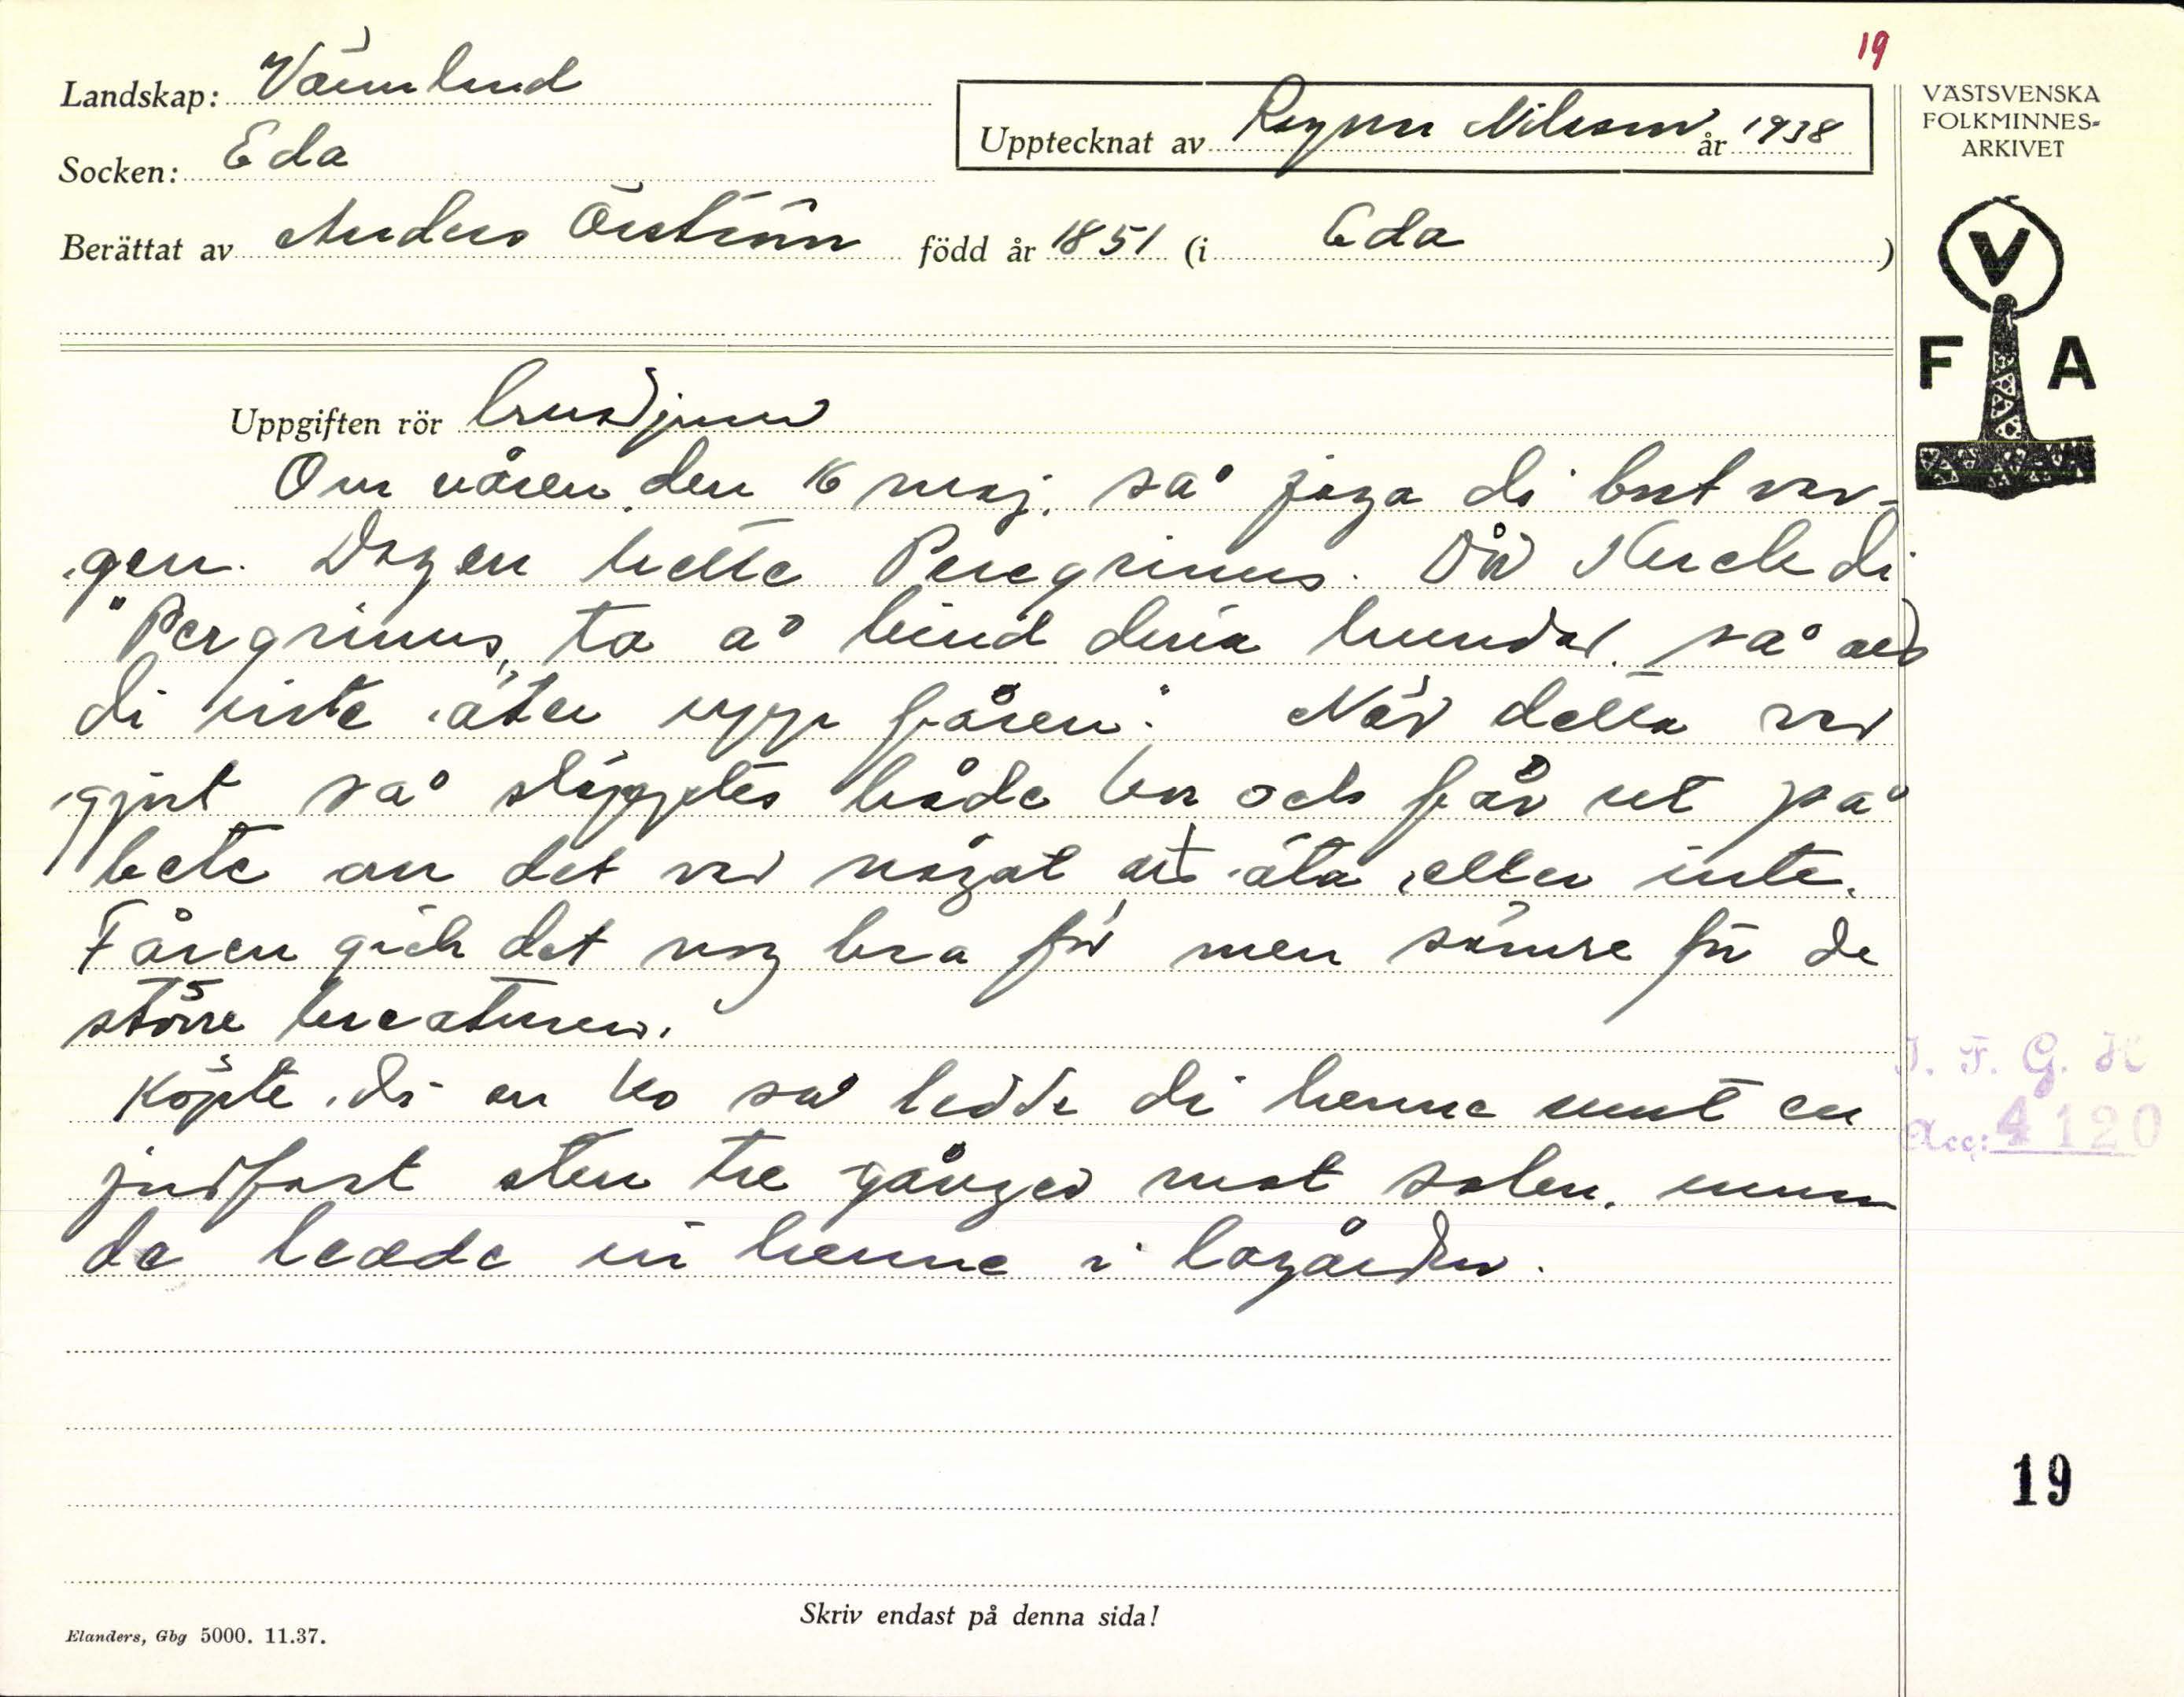 19
Landskap: Värmland
Socken: Eda
Upptecknat av Ragnar Nilsson år 1938
Berättat av Anders Öström född år 1851 (i Eda )
VÄSTSVENSKA
FOLKMINNES-
ARKIVET
V
F A
Uppgiften rör husdjur
Om våren den 16 maj, så jaga di bort var-
gen. Dagen hette Peregrinus. Då skrek di
"Pergrinus, ta å bind dina hundar, så att
di inte äter upp fåren". När detta var
gjort så släpptes både kor och får ut på
bete om det var något att äta eller inte.
Fåren gick det nog bra för men sämre för de
större kreaturen.
Köpte di en ko så ledde di henne runt en
jordfast sten tre gånger mot solen, innan
de ledde in henne i lagården.
I. F. G. H
Acc: 4120
19
Skriv endast på denna sida!
Elanders, Gbg 5000. 11.37.